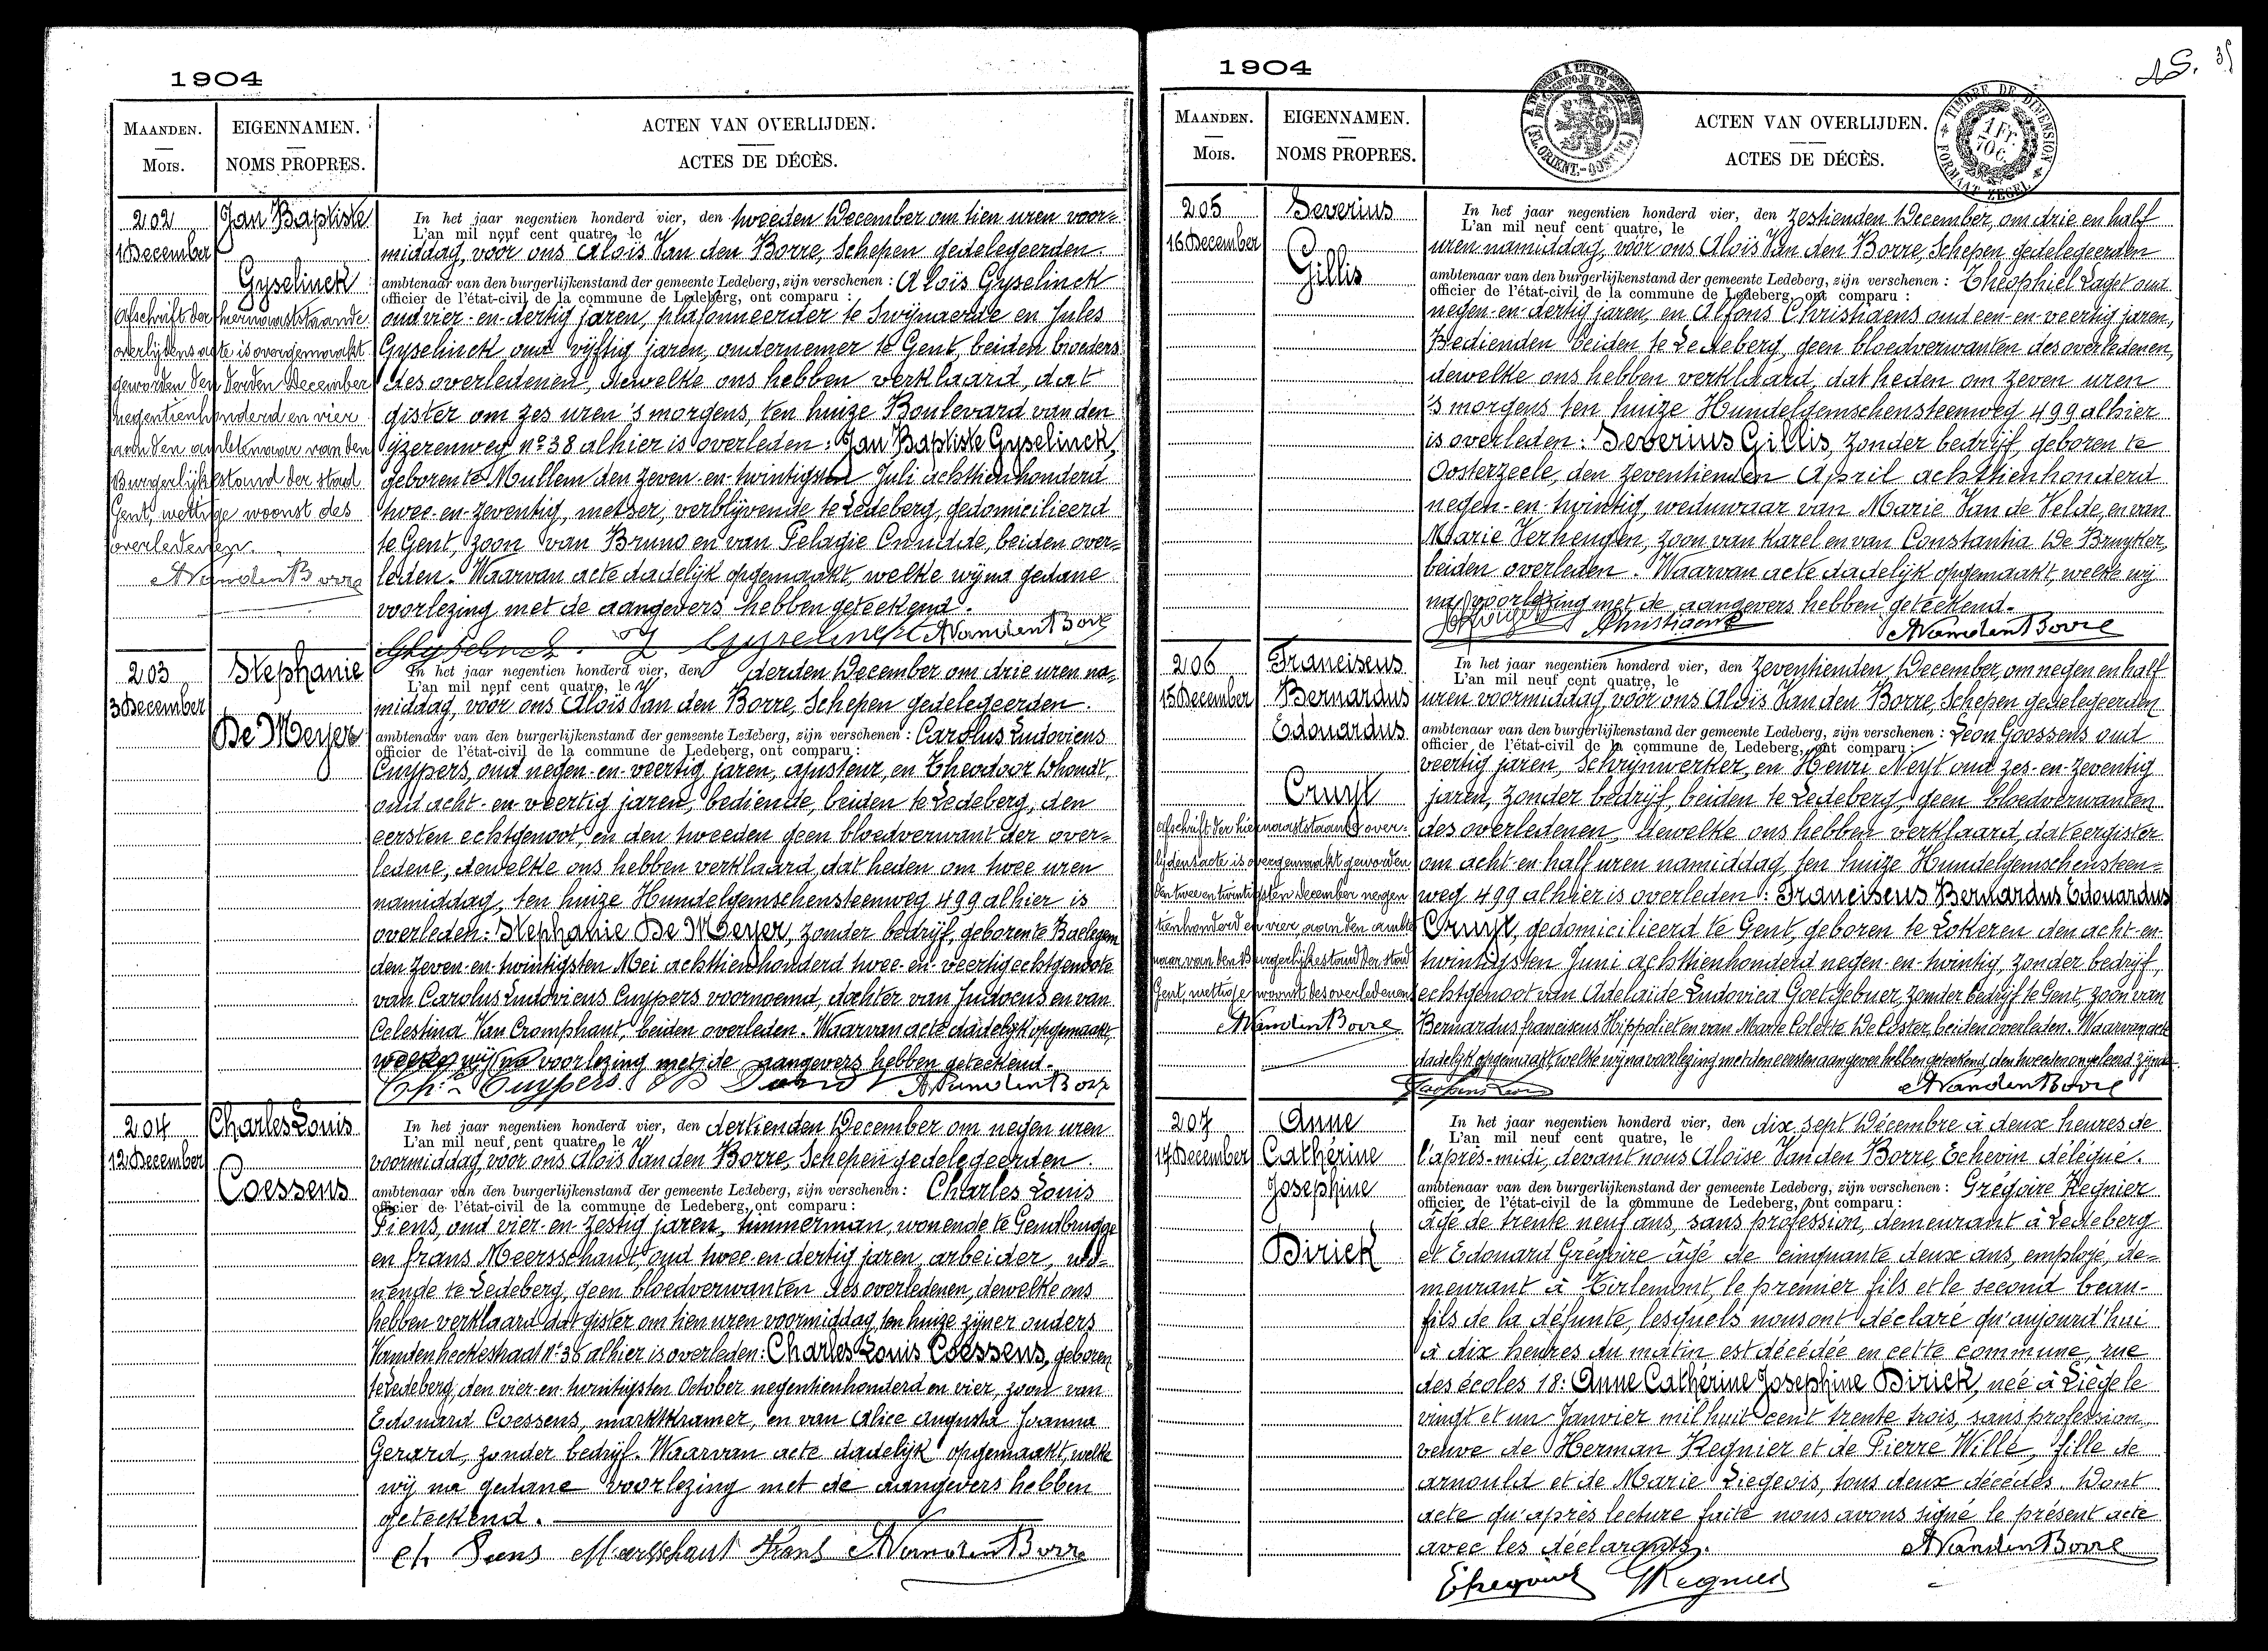 1904
MAANDEN.
Mois.
EIGENNAMEN.
NOMS PROPRES.
ACTEN VAN OVERLIJDEN.
ACTES DE DÉCÈS.
202
1 December
Jan Baptiste
Gyselinck
Afschrift der hiernevenstaande
overlijdens acte is overgemaakt
geworden den derden December
negentienhonderd en vier
aan den ambtenaar van den
Burgerlijkestand der stad
Gent, wettige woonst des
overledenen.
AVandenBorre
In het jaar negentien honderd vier, den tweeden December om tien uren voor=
L'an mil neuf cent quatre, le
middag, voor ons Aloïs Van den Borre, Schepen gedelegeerden
ambtenaar van den burgerlijkenstand der gemeente Ledeberg, zijn verschenen : Aloïs Gyselinck
officier de l'état-civil de la commune de Ledeberg, ont comparu :
oud vier-en-dertig jaren, plafonneerder te Swijnaerde en Jules
Gyselinck oud vijftig jaren, ondernemer te Gent, beiden broeders
des overledenen, dewelke ons hebben verklaard, dat
gister om zes uren 's morgens, ten huize Boulevard van den
Yzerenweg no 38 alhier is overleden : Jan Baptiste Gyselinck,
geboren te Mullem den zeven-en-twintigsten Juli achttienhonderd
twee-en-zeventig, metser, verblijvende te Ledeberg, gedomicilieerd
te Gent, zoon van Bruno en van Pelagie Cnudde, beiden over=
leden. Waarvan acte dadelijk opgemaakt, welke wij na gedane
voorlezing met de aangevers hebben geteekend.
Gyselinck AVandenBorre
203
3 December
Stephanie
De Meyer
In het jaar negentien honderd vier, den derden December om drie uren na=
L'an mil neuf cent quatre, le
middag, voor ons Aloïs Van den Borre, Schepen gedelegeerden
ambtenaar van den burgerlijkenstand der gemeente Ledeberg, zijn verschenen : Carolus Ludovicus
officier de l'état-civil de la commune de Ledeberg, ont comparu :
Cuypers, oud negen-en-veertig jaren, ajusteur, en Theodoor Dhondt,
oud acht-en-veertig jaren, bediende, beiden te Ledeberg, den
eersten echtgenoot, en den tweeden geen bloedverwant der over=
ledene, dewelke ons hebben verklaard, dat heden om twee uren
namiddag, ten huize Hundelgemschensteenweg 499 alhier is
overleden: Stephanie De Meyer, zonder bedrijf, geboren te Baelegem
den zeven-en-twintigsten Mei achttienhonderd twee-en-veertig echtgenoote
van Carolus Ludovicus Cuypers voornoemd, dochter van Judocus en van
Celestina Van Cromphaut, beiden overleden. Waarvan acte dadelijk opgemaakt,
welke wij na voorlezing met de aangevers hebben geteekend.
Cuypers AVandenBorre
204
12 December
Charles Louis
Coessens
In het jaar negentien honderd vier, den dertienden December om negen uren
L'an mil neuf cent quatre, le
voormiddag, voor ons Aloïs Van den Borre, Schepen gedelegeerden
ambtenaar van den burgerlijkenstand der gemeente Ledeberg, zijn verschenen: Charles Louis
officier de l'état-civil de la commune de Ledeberg, ont comparu :
Piens, oud vier-en-zestig jaren, timmerman, wonende te Gendbrugge
en frans Meersschaut, oud twee-en-dertig jaren, arbeider, wo=
nende te Ledeberg, geen bloedverwanten des overledenen, dewelke ons
hebben verklaard dat gister om tien uren voormiddag, ten huize zijner ouders
Vandenheckestraat no 36 alhier is overleden: Charles Louis Coessens, geboren
te Ledeberg, den vier-en-twintigsten October negentienhonderd en vier, zoon van
Edouard Coessens, marktkramer, en van Alice Augusta Joanna
Gerard, zonder bedrijf. Waarvan acte dadelijk opgemaakt, welke
wij na gedane voorlezing met de aangevers hebben
geteekend.
Ch Piens Meersschaut Frans AVandenBorre
1904
TIMBRE DE DIMENSION
1 Fr. 70 C.
FORMAAT ZEGEL
MAANDEN.
Mois.
EIGENNAMEN.
NOMS PROPRES.
ACTEN VAN OVERLIJDEN.
ACTES DE DÉCÈS.
205
16 December
Severius
Gillis
In het jaar negentien honderd vier, den zestienden December, om drie en half
L'an mil neuf cent quatre, le
uren namiddag, voor ons Aloïs Van den Borre, Schepen gedelegeerden
ambtenaar van den burgerlijkenstand der gemeente Ledeberg, zijn verschenen : Theophiel Laget oud
officier de l'état-civil de la commune de Ledeberg, ont comparu :
negen-en-dertig jaren, en Alfons Christiaens oud een-en-veertig jaren,
Bedienden beiden te Ledeberg, geen bloedverwanten des overledenen,
dewelke ons hebben verklaard, dat heden om zeven uren
's morgens ten huize Hundelgemschensteenweg 499 alhier
is overleden: Severius Gillis, zonder bedrijf, geboren te
Oosterzeele, den zeventienden April achttienhonderd
negen-en-twintig, weduwaar van Marie Van de Velde, en van
Marie Verheugen, zoon van Karel en van Constantia De Bruyker,
beiden overleden. Waarvan acte dadelijk opgemaakt, welke wij
na voorlezing met de aangevers hebben geteekend.
Christiaens AVandenBorre
206
15 December
Franciscus
Bernardus
Edouardus
Cruyt
Afschrift der hiernaaststaande over=
lijdensacte is overgemaakt geworden
den twee en twintigsten December negen
tienhonderd en vier, aan den ambte
naar van den Burgerlijkestand der stad
Gent, wettige woonst des overledenen
AVandenBorre
In het jaar negentien honderd vier, den zeventienden December, om negen en half
L'an mil neuf cent quatre, le
uren voormiddag, voor ons Aloïs Van den Borre, Schepen gedelegeerden
ambtenaar van den burgerlijkenstand der gemeente Ledeberg, zijn verschenen : Leon Goossens oud
officier de l'état-civil de la commune de Ledeberg, ont comparu :
veertig jaren, Schrijnwerker, en Henri Neyt oud zes-en-zeventig
jaren, zonder bedrijf, beiden te Ledeberg, geen bloedverwanten
des overledenen, dewelke ons hebben verklaard, dat eergister
om acht-en-half uren namiddag, ten huize Hundelgemschensteen=
weg 499 alhier is overleden : Franciscus Bernardus Edouardus
Cruyt, gedomicilieerd te Gent, geboren te Lokeren den acht-en-
twintigsten Juni achttienhonderd negen-en-twintig, zonder bedrijf,
echtgenoot van Adelaïde Ludovica Goetgebuer, zonder bedrijf te Gent, zoon van
Bernardus franciscus Hippoliet en van Marie Colette De Coster, beiden overleden. Waarvan acte
dadelijk opgemaakt welke wij na voorlezing met den eersten aangever hebben geteekend, den tweeden ongeleerd zijnde.
Goossens Leon AVandenBorre
207
17 December
Anne
Cathérine
Josephine
Dirick
In het jaar negentien honderd vier, den dix-sept Décembre à deux heures de
L'an mil neuf cent quatre, le
l'après-midi, devant nous Aloïse Van den Borre, Echevin délégué.
ambtenaar van den burgerlijkenstand der gemeente Ledeberg, zijn verschenen : Grégoire Regnier
officier de l'état-civil de la commune de Ledeberg, ont comparu :
âgé de trente neuf ans, sans profession, demeurant à Ledeberg
et Edouard Grégoire âgé de cinquante deux ans, employé, de=
meurant à Tirlemont, le premier fils et le second beau-
fils de la défunte, lesquels nous ont déclaré qu'aujourd'hui
à dix heures du matin est décédée en cette commune, rue
des écoles 18: Anne Cathérine Josephine Dirick, née à Liège le
vingt et un Janvier mil huit cent trente trois, sans profession,
veuve de Herman Regnier et de Pierre Willé, fille de
arnould et de Marie Liegeois, tous deux décédés. Dont
acte qu'après lecture faite nous avons signé le présent acte
avec les déclarants. AVandenBorre
EGregoire GRegnier